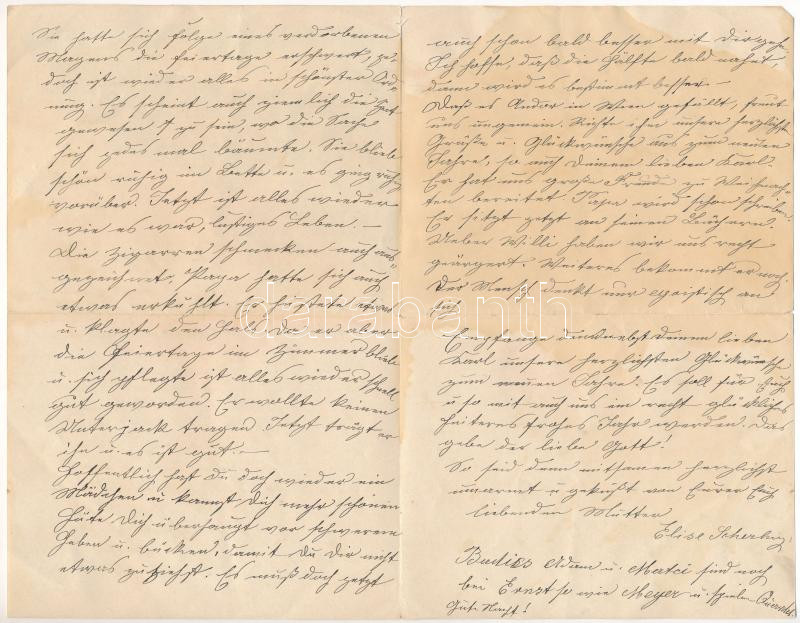 Sie hatte sich folge eines verdorbenen
Magens die Feiertage erschwert, je-
doch ist wieder alles in schönster Ord-
nung. Es scheint auch ziemlich die Zeit
gewesen zu sein, wo die Sache
sich jedes mal bäumte. Sie blieb
schön ruhig im Bette u. es ging ruhig
vorüber. Jetzt ist alles wieder
wie es war, lustiges Leben. —
Die Zigarren schmecken auch aus-
gezeichnet, Papa hatte sich auch
etwas erkühlt. Er hustete etwas
u. klagte den Hals. Da er aber
die Feiertage im Zimmer blieb
u. sich pflegte ist alles wieder schnell
gut geworden. Er wollte keinen
Unterjack tragen. Jetzt trägt er
ihn u. es ist gut. —
Hoffentlich hast Du doch wieder ein
Mädchen u. kannst Dich mehr schonen
Hüte Dich überhaupt vor schwerem
Heben u. bücken, damit Du Dir nicht
etwas zuziehst. Es muß doch jetzt
auch schon bald besser mit Dir gehn.
Ich hoffe, daß die Hälfte bald nahet,
dann wird es bestimmt besser. —
Daß es Andor in Wien gefällt, freut
uns ungemein. Richte ihm unsere herzlichst
Grüße u. Glückwünsche aus zum neuen
Jahre, so auch Deinem lieben Karl.
Er hat uns große Freude zu Weihnach-
ten bereitet. Papa wird schon schreiben.
Er sitzt jetzt an seinen Büchern.
Ueber Willi haben wir uns recht
geärgert. Weiteres bekommt er noch.
Der Mensch denkt nur egoistisch an
sich.
Empfange Du nebst Deinem lieben
Karl unsere herzlichsten Glückwünsche
zum neuen Jahre. Es soll für Euch
u. so mit auch uns ein recht glückliches
heiteres frohes Jahr werden. Das
gebe der liebe Gott!
So seid denn mitsamen herzlichst
umarmt u. geküßt von Eurer Euch
liebenden Mutter
Elise
Adam u. sind noch
bei Ernst so wie Meyer u. spielen
Gute Nacht!
darabanth